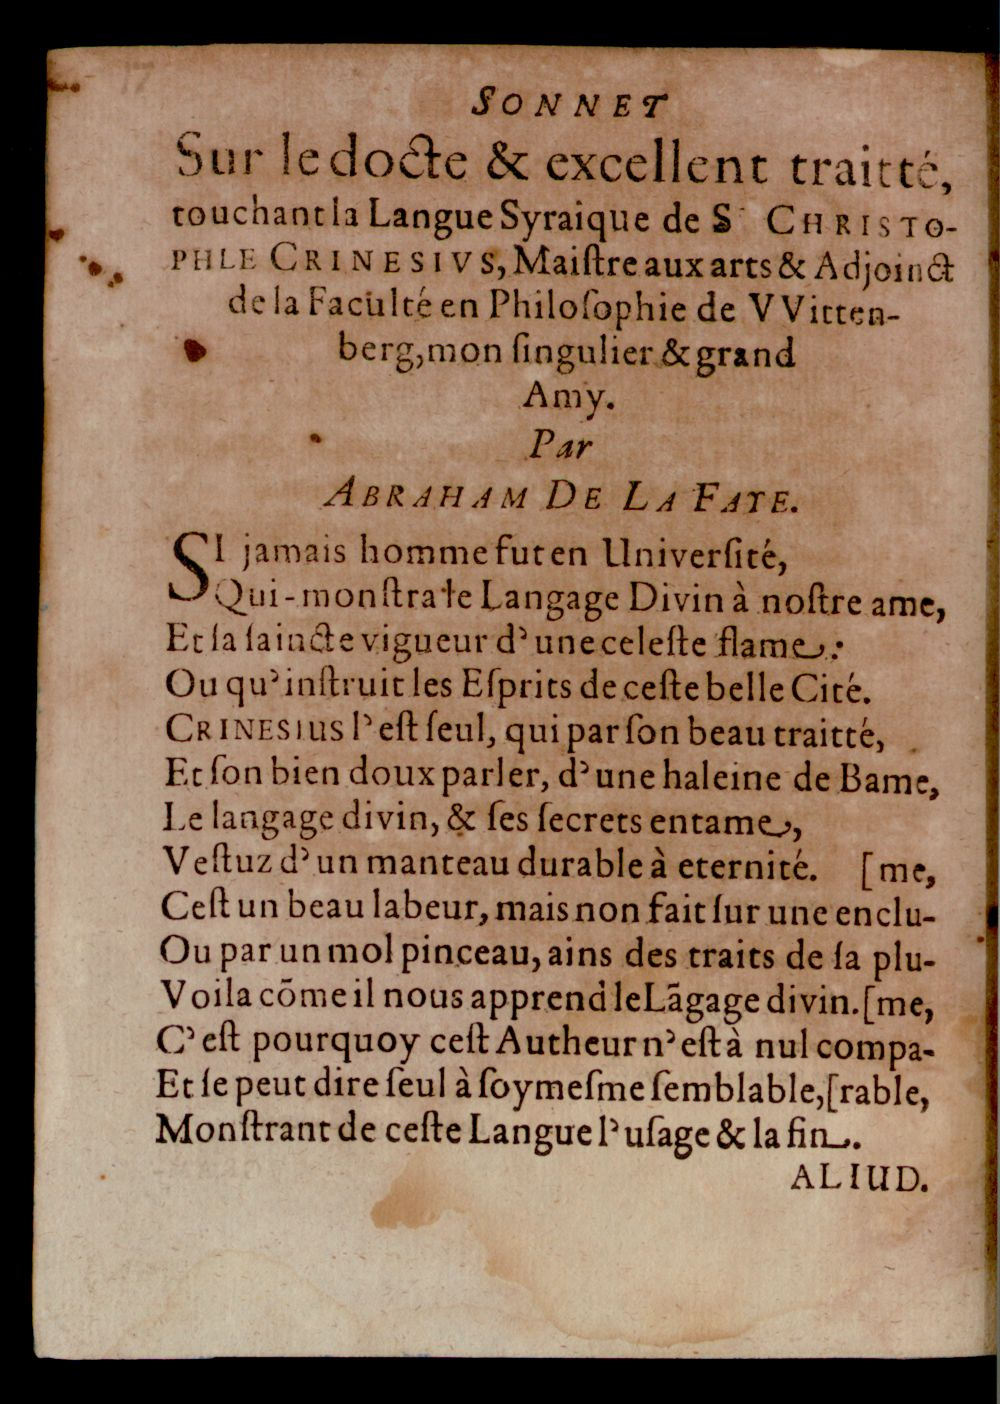 SONNET
Sur le docte & excellent traitté,
touchant la Langue Syraique de S CHRISTO-
PHLE CRINESIVS, Maiſtre aux arts & Adjoinct
de la Faculté en Philoſophie de VVitten-
berg, mon ſingulier & grand
Amy.
Par
ABRAHAM DE LA FAYE.
SI jamais homme fut en Univerſité,
Qui-monſtra le Langage Divin à noſtre ame,
Et ſa ſaincte vigueur d'une celeſte flame:
Ou qu'inſtruit les Eſprits de ceſte belle Cité.
CRINESIUS l'eſt ſeul, qui par ſon beau traitté,
Et ſon bien doux parler, d'une haleine de Bame,
Le langage divin, & ſes ſecrets entame,
Veſtuz d'un manteau durable à eternité. [me,
Ceſt un beau labeur, mais non fait ſur une enclu-
Ou par un mol pinceau, ains des traits de ſa plu-
Voila cõme il nous apprend le Lãgage divin. [me,
C'eſt pourquoy ceſt Autheur n'eſt à nul compa-
Et ſe peut dire ſeul à ſoymeſme ſemblable, [rable,
Monſtrant de ceſte Langue l'uſage & la fin.
ALIUD.